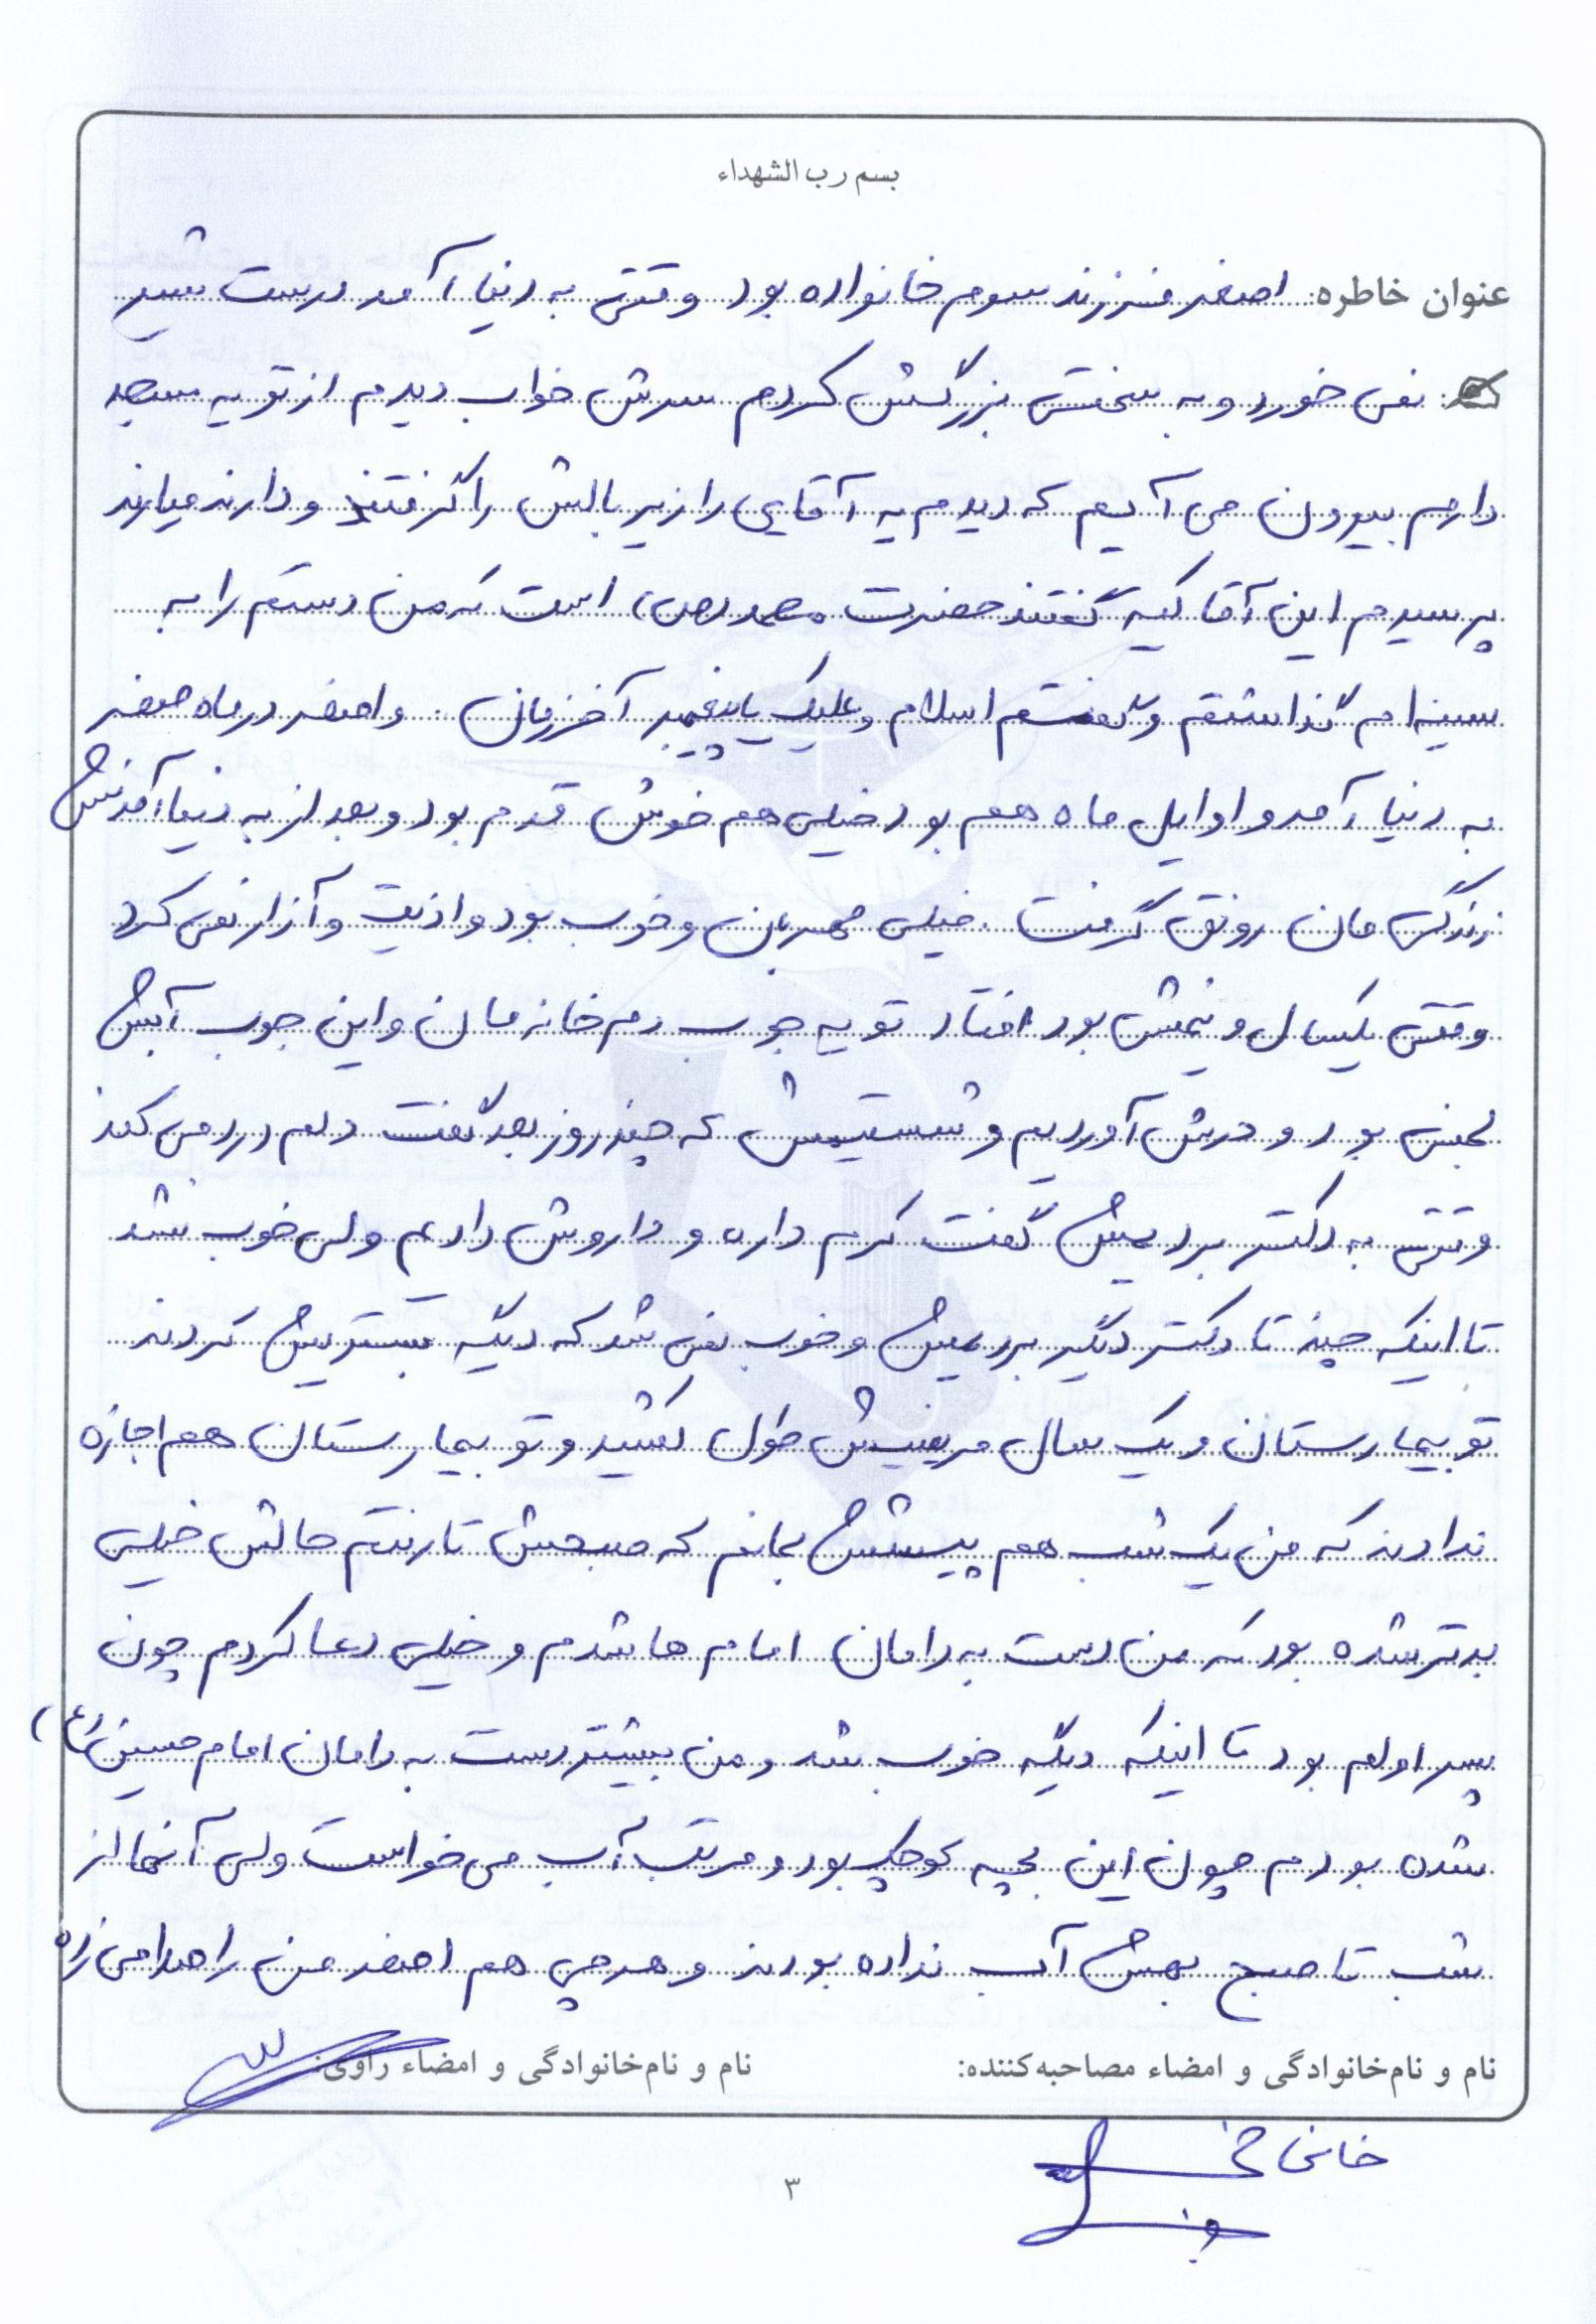 بسم رب الشهداء
عنوان خاطره: اصغر فرزند سوم خانواده بود وقتی به دنیا آمد درست شیر
نمی خورد و به سختی بزرگش کردم سرش خواب دیدم از تو یه مسجد
دارم بیرون می آیم که دیدم یه آقای را زیر بالش را گرفتند و دارند میارند
پرسیدم این آقا کیه گفتند حضرت محمد (ص) است که من دستم را به
سینه ام گذاشتم و گفتم اسلام و علیک یا پیغمبر آخر زمان. و اصغر در ماه صفر
به دنیا آمد و اوایل ماه هم بود خیلی هم خوش قدم بود و بعد از به دنیا آمدنش
زندگی مان رونق گرفت. خیلی مهربان و خوب بود و اذیت و آزار نمی کرد
وقتی یکسال و نیمش بود افتاد تو یه جوب دم خانه مان و این جوب آبش
لجنی بود و درش آوردیم و شستیمش که چند روز بعد گفت دلم درد می کند
وقتی به دکتر بردیمش گفت کرم داره و داروش دادیم ولی خوب نشد
تا اینکه چند تا دکتر دیگر بردیمش و خوب نمی شد که دیگه بستریش کردند
تو بیمارستان و یک سال مریضیش طول کشید و تو بیمارستان هم اجازه
ندادند که من یک شب هم پیشش بمانم که صبحش تا رفتم حالش خیلی
بدتر شده بود که من دست به دامان امام ها شدم و خیلی دعا کردم چون
پسر اولم بود تا اینکه دیگه خوب شد و من بیشتر دست به دامان امام حسین (ع)
شدن بودم چون این بچه کوچک بود و مرتب آب می خواست ولی آنها از
شب تا صبح بهش آب نداده بودند و هرچی هم اصغر من را صدا می زده
نام و نام‌خانوادگی و امضاء مصاحبه‌کننده: نام و نام‌خانوادگی و امضاء راوی:
۳